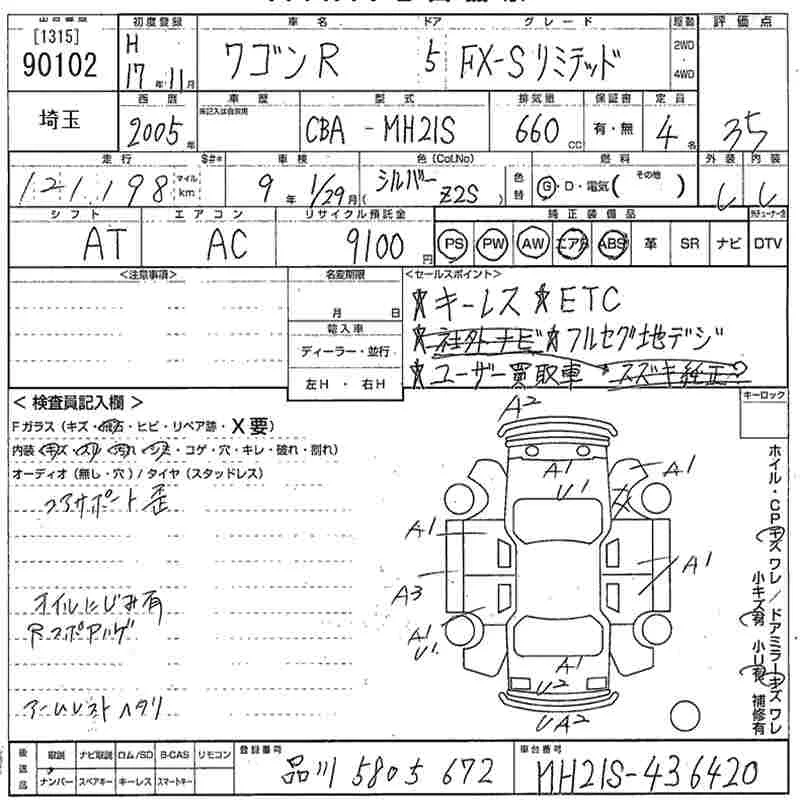 [1315]
90102
初度登録
H
17年11月
車名
ワゴンR
ドア
5
グレード
FX-Sリミテッド
2WD
・
4WD
評価点
35
埼玉
西暦
2005年
車歴
型式
CBA - MH21S
排気量
660 CC
保証書
有・無
定員
4名
走行
121,198
マイル
km
$#*
車検
9年1/29月
色(Col.No)
シルバー
Z2S
色替
燃料
G・D・電気( その他 )
外装
内装
し
し
シフト
AT
エアコン
AC
リサイクル預託金
9100円
純正装備品
PS
PW
AW
エアB
ABS
革
SR
ナビ
DTV
<注意事項>
名変期限
月 日
輸入車
ディーラー・並行
左H ・ 右H
<セールスポイント>
★キーレス ★ETC
★社外ナビ★フルセグ地デジ
★ユーザー買取車 スズキ純正
キーロック
< 検査員記入欄 >
Fガラス(キズ・飛石・ヒビ・リペア跡・X要)
内装(キズ・スリ・汚れ・シミ・コゲ・穴・キレ・破れ・割れ)
オーディオ(無し・穴)/タイヤ(スタッドレス)
コアサポート歪
オイルにじみ有
Rスポアゲ
アームレストヘタリ
A2
A1
U1
A1
A1
A3
A1
A1
U1
A1
U2
UA2
ホイル・CPキズワレ/ドアミラーキズワレ
小キズ有 小U有 補修有
後送品
取説
ナビ取説
ロム/SD
B-CAS
リモコン
ナンバー
スペアキー
キーレス
スマートキー
登録番号
品川 580 5 672
車台番号
MH21S-436420